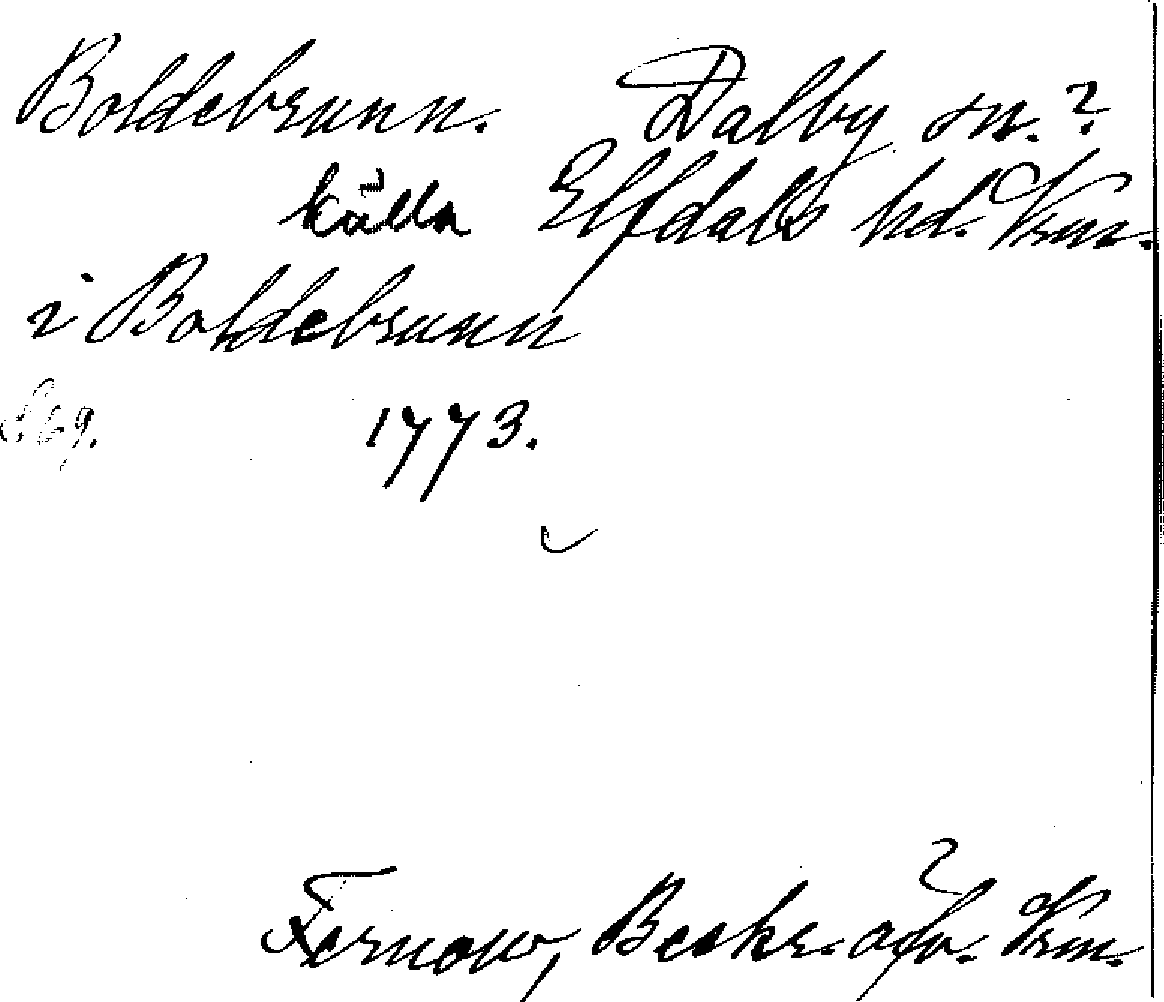 Boldebrunn. Dalby sn.?
källa Elfdals hd. Vrm.
i Boldebrunn
1773.
Fernow, Beskr. öfv. Vrm.